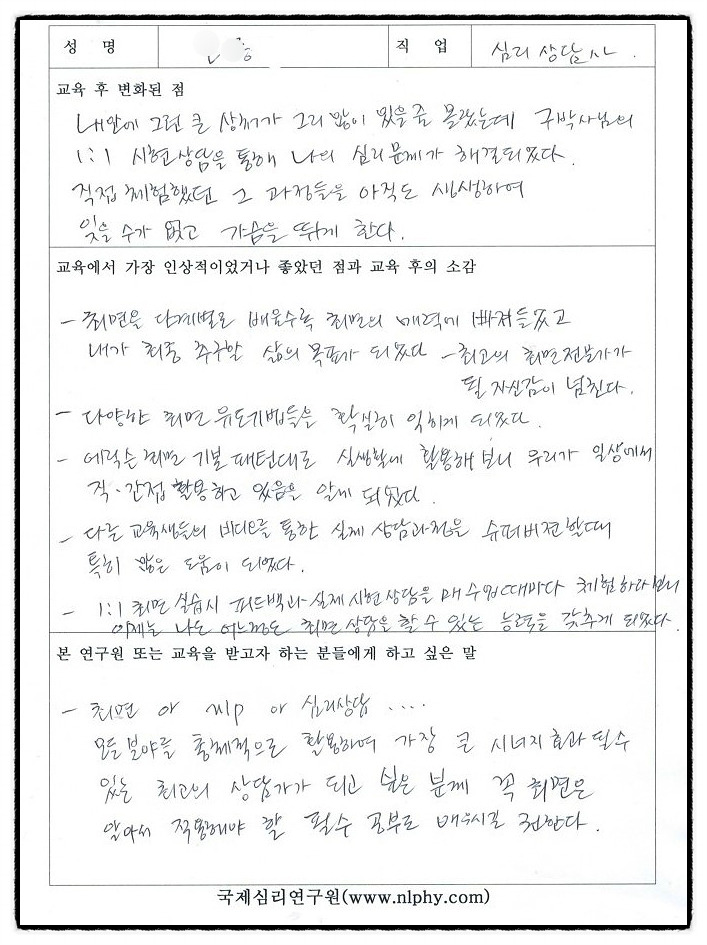 성 명 직 업 심리상담사.
교육 후 변화된 점
내안에 그런 큰 상처가 그리 많이 있을줄 몰랐는데 구박사님의
1:1 시현상담을 통해 나의 심리문제가 해결되었다.
직접 체험했던 그 과정들을 아직도 생생하여
잊을 수가 없고 가슴을 뛰게 한다.
교육에서 가장 인상적이었거나 좋았던 점과 교육 후의 소감
- 최면을 단계별로 배울수록 최면의 매력에 빠져들었고
내가 최종 추구할 삶의 목표가 되었다 - 최고의 최면전문가가
될 자신감이 넘친다.
- 다양한 최면유도기법들을 확실히 익히게 되었다.
- 에릭슨최면 기본 패턴대로 실생활에 활용해보니 우리가 일상에서
직·간접 활용하고 있음을 알게 되었다.
- 다른 교육생들의 비디오를 통한 실제 상담과정을 슈퍼버전할때
특히 많은 도움이 되었다.
- 1:1 최면 실습시 피드백과 실제시현상담을 매 수업때마다 체험하다보니
이제는 나도 어느정도 최면상담을 할 수 있는 능력을 갖추게 되었다.
본 연구원 또는 교육을 받고자 하는 분들에게 하고 싶은 말
- 최면 or nlp or 심리상담 ....
모든분야를 통체적으로 활용하여 가장 큰 시너지효과 될수
있는 최고의 상담가가 되고 싶은 분께 꼭 최면은
알아서 적용해야 할 필수 공부로 배우시길 권한다.
국제심리연구원(www.nlphy.com)